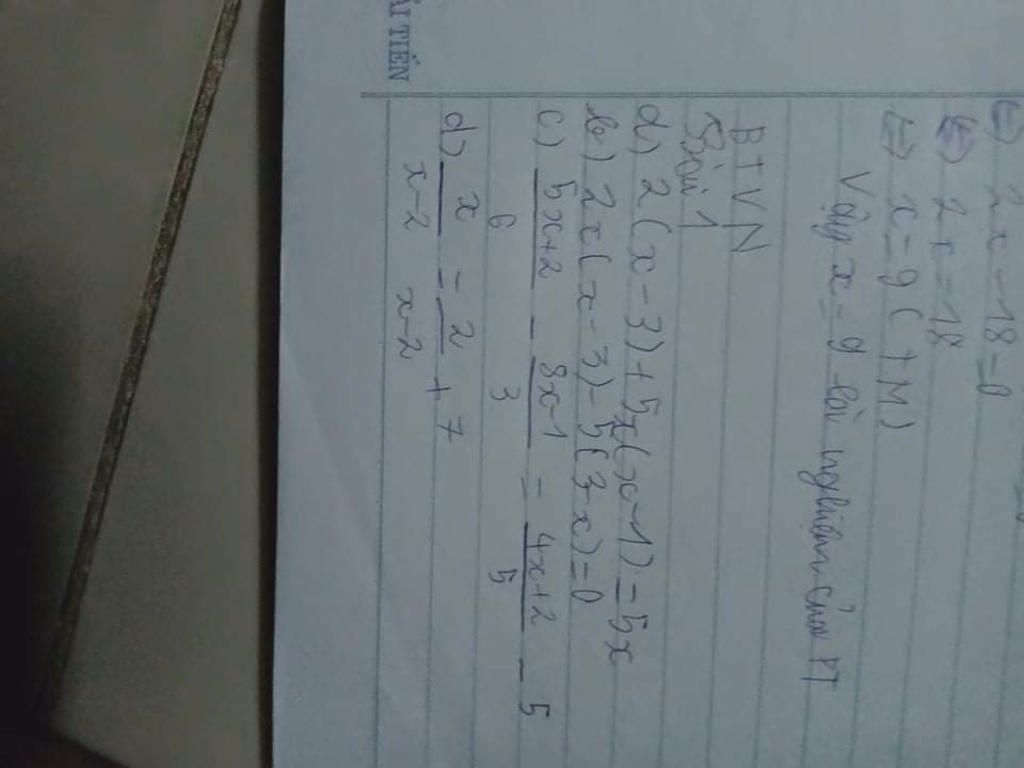 ⇔ 2x - 18 = 0
⇔ 2x = 18
⇔ x = 9 (TM)
Vậy x = 9 là nghiệm của PT
BTVN
Bài 1
a) 2(x-3) + 5x(x-1) = 5x
b) 2x(x-3) - 5(3-x) = 0
c) 5x+2 - 8x-1 = 4x+2 - 5
6 3 5
d) x - 2 + 7
x-2 x-2
ẢI TIẾN